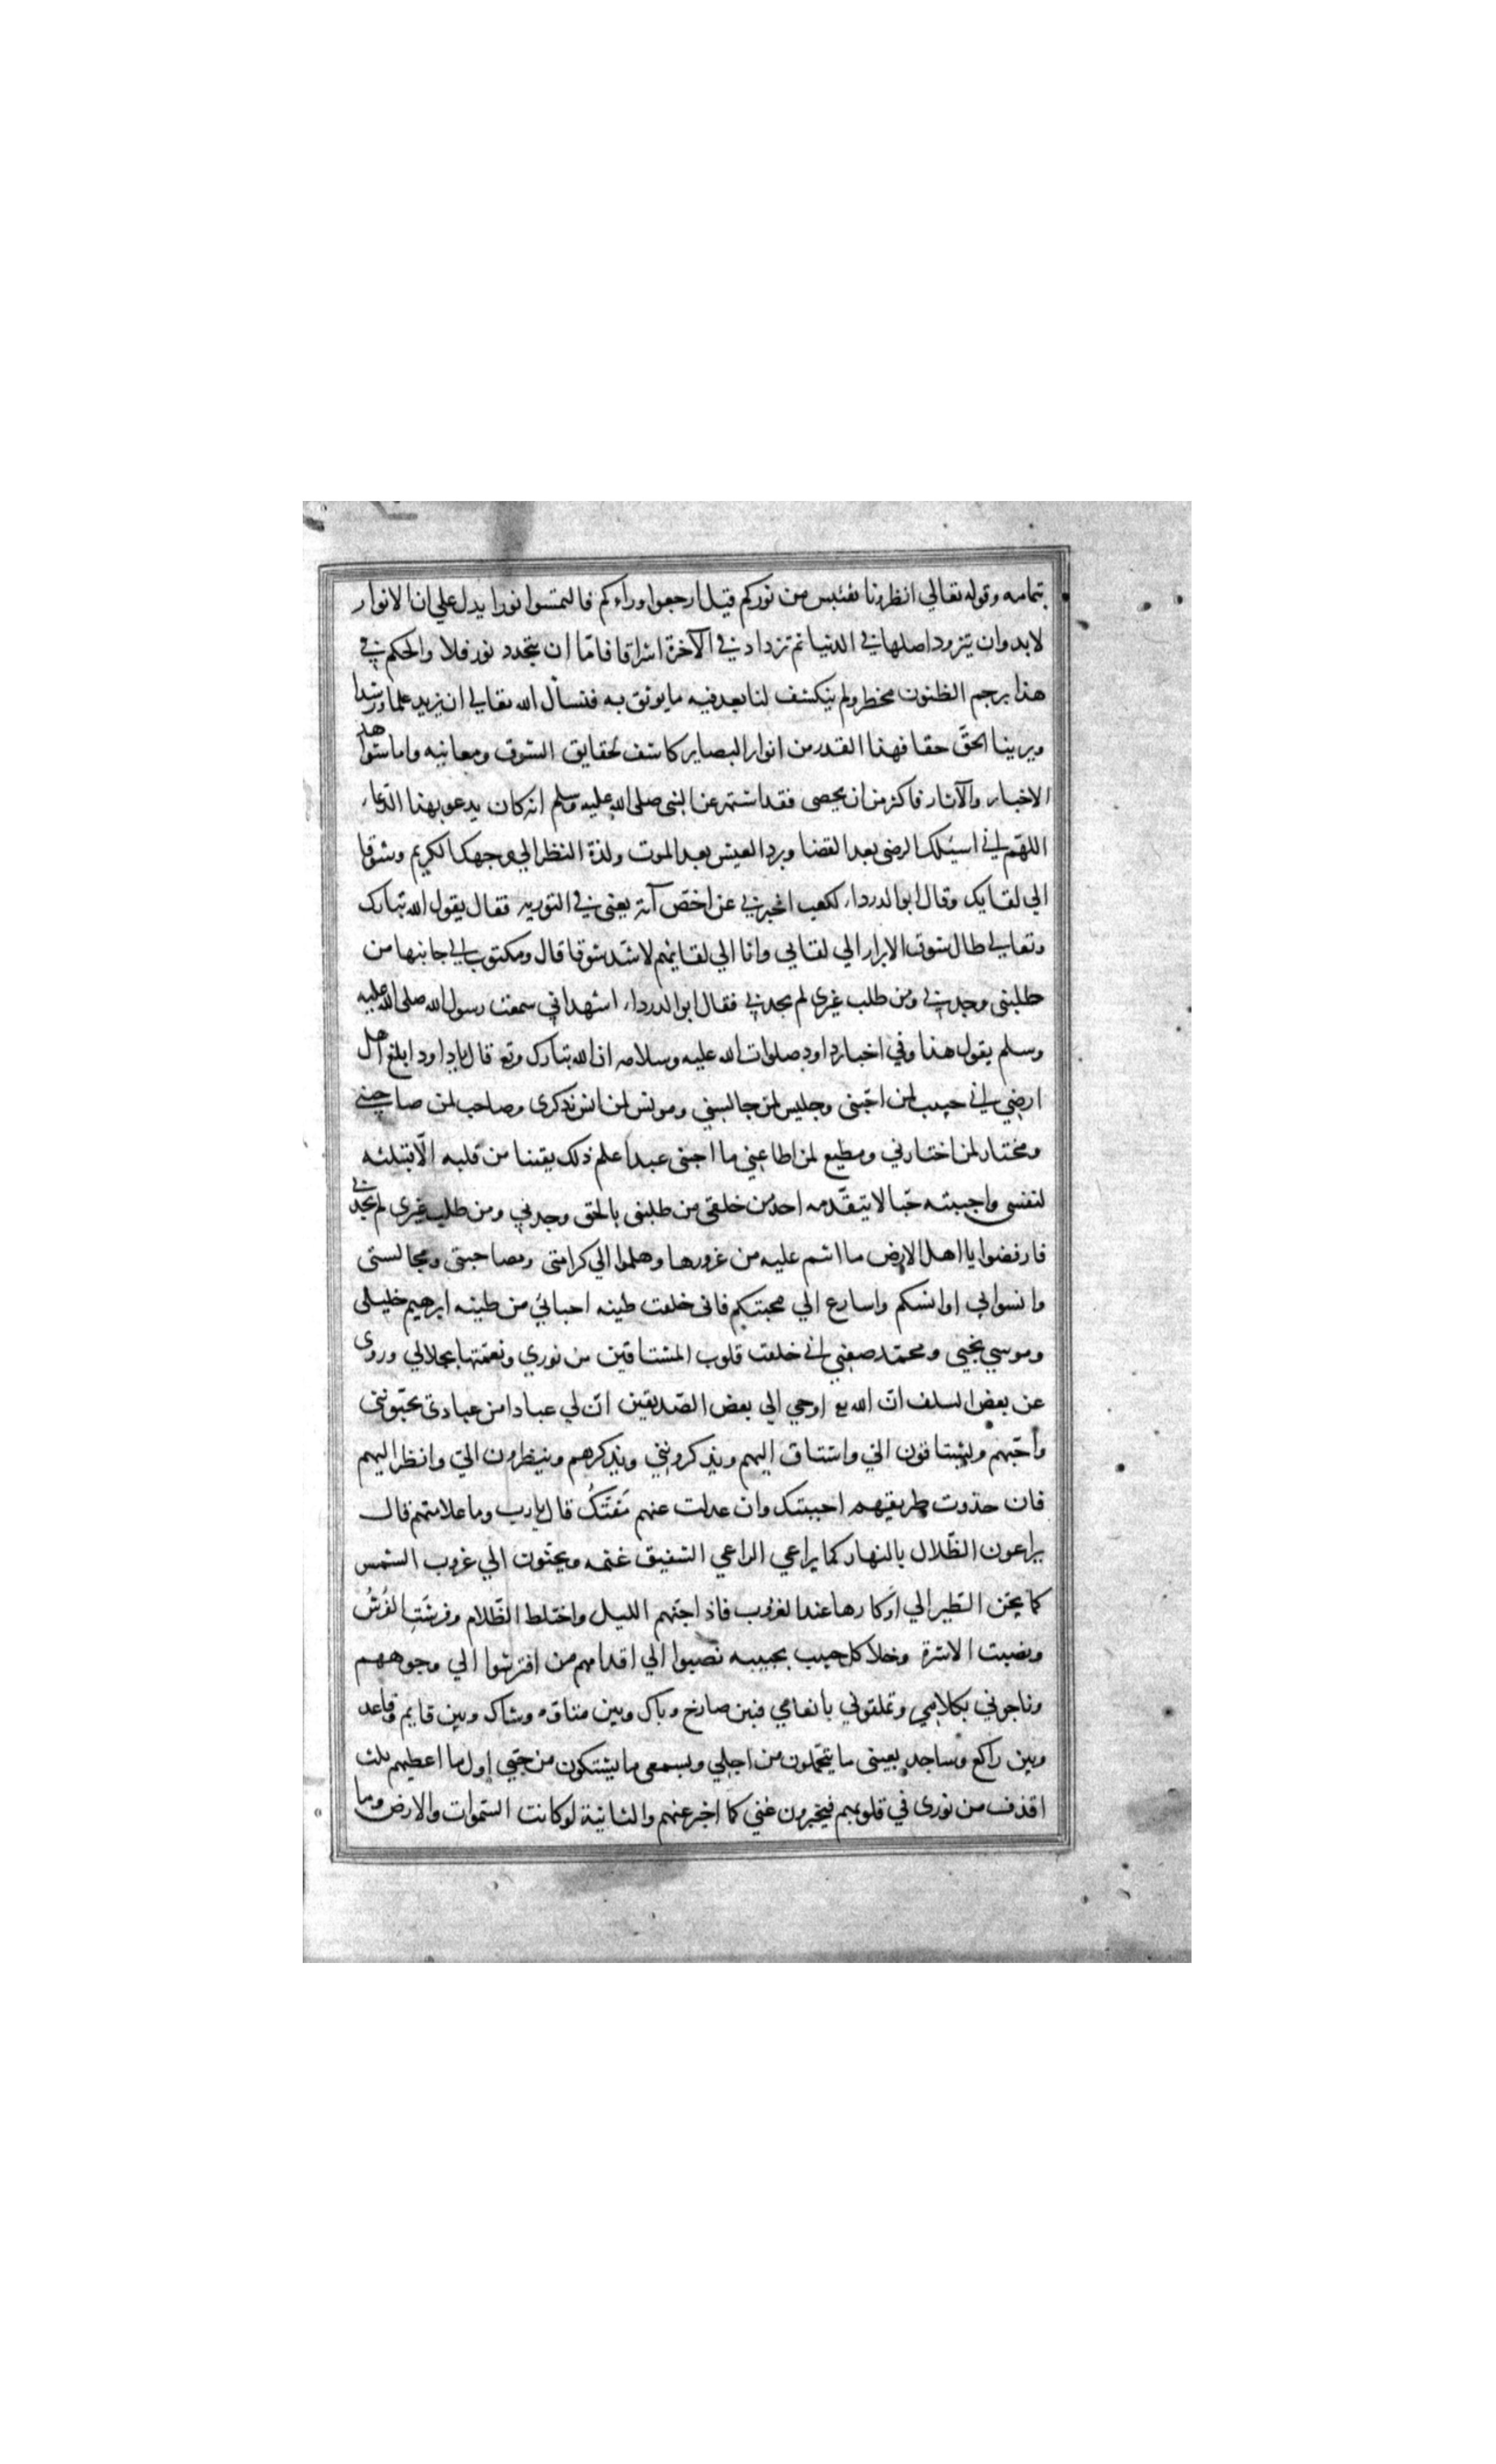 بتمامه وقوله تعالي انظرونا نقتبس من نوركم قيل ارجعوا وراءكم فالتمسوا نورا يدل علي ان الانوار
لا بد وان يتزود اصلها في الدنيا ثم تزداد في الآخرة اشراقا فاما ان يتجدد نور فلا والحكم في
هذا برجم الظنون مخطر ولم ينكشف لنا بعد فيه ما يوثق به فنسأل الله تعالي ان يزيد علما ورشدا
ويرينا الحقّ حقا فهذا القدر من انوار البصاير كاشف لحقايق الشوق ومعانيه واما شواهد
الاخبار والآثار فاكثر من ان يحصى فقد اشتهر عن النبى صلى الله عليه وسلم انه كان يدعو بهذا الدّعاء
اللهّم اني اسئلك الرضى بعد القضا وبرد العيش بعد الموت ولذة النظر الي وجهك الكريم وشوقا
الي لقايك وقال ابو الدرداء لكعب اخبرني عن اخصّ آية يعنى في التورية فقال يقول الله تبارك
وتعالي طال شوق الابرار الي لقايي وانا الي لقايهم لاشد شوقا قال ومكتوب الي جانبها من
طلبنى وجدني ومن طلب غيرى لم يجدني فقال ابو الدرداء اشهد اني سمعت رسول الله صلى الله عليه
وسلم يقول هذا وفي اخبار داود صلوات الله عليه وسلامه ان الله تبارك وتع قال يا داود ابلغ اهل
ارضي اني حبيب لمن احبّنى وجليس لمن جالسني ومونس لمن انس بذكرى وصاحب لمن صاحبني
ومختار لمن اختارني ومطيع لمن اطاعني ما احبنى عبد اعلم ذلك يقينا من قلبه الّا قبلته
لنفسى واحببته حبّا لا يتقدّمه احد من خلقى من طلبنى بالحق وجدني ومن طلب غيرى لم يجدني
فارفضوا يا اهل الارض ما انتم عليه من غرورها وهلموا الي كرامتى ومصاحبتى ومجالستى
وانسوا بي اوانسكم واسارع الي محبتكم فانى خلقت طينة احبائي من طينة ابرهيم خليلى
وموسي نجيى ومحمّد صفيي اني خلقت قلوب المشتاقين من نوري ونعّمتها بجلالي وروى
عن بعض السلف انّ الله تع اوحي الي بعض الصّديقين انّ لي عبادا من عبادى يحبّوننى
واحبّهم ويشتاقون الىّ واشتاق اليهم ويذكرونني ويذكرهم وينظرون الىّ وانظر اليهم
فان حذوت طريقهم احببتك وان عدلت عنهم مَقتّكُ قال يا رب وما علامتهم قال
يراعون الظّلال بالنهار كما يراعي الراعي الشفيق غنمه ويحنّون الي غروب الشمس
كما يحّن الطّير الي اوكارها عند الغروب فاذا جنّهم الليل واختلط الظّلام وفرشَتِ الفُرُشُ
ونصبت الاسّرة وخلا كل حبيب بحبيبه نصبوا الي اقدامهم من افترشوا الي وجوههم
وناجوني بكلامي وتملقوني بانعامي فبين صارخ وباك وبين متاوّه وشاك وبين قايم وقاعد
وبين راكع وساجد بعينى ما يتحمّلون من اجلي وبسمعى ما يشتكون من حبّي اول ما اعطيهم ثلث
اقذف من نورى في قلوبهم فيخبرون عنّي كما اخبر عنهم والثانية لو كانت السّموات والارض وما